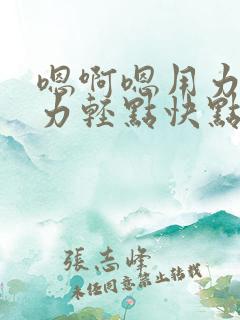 嗯啊嗯用力
力輕點快點
張志峰
未经同意禁止转载